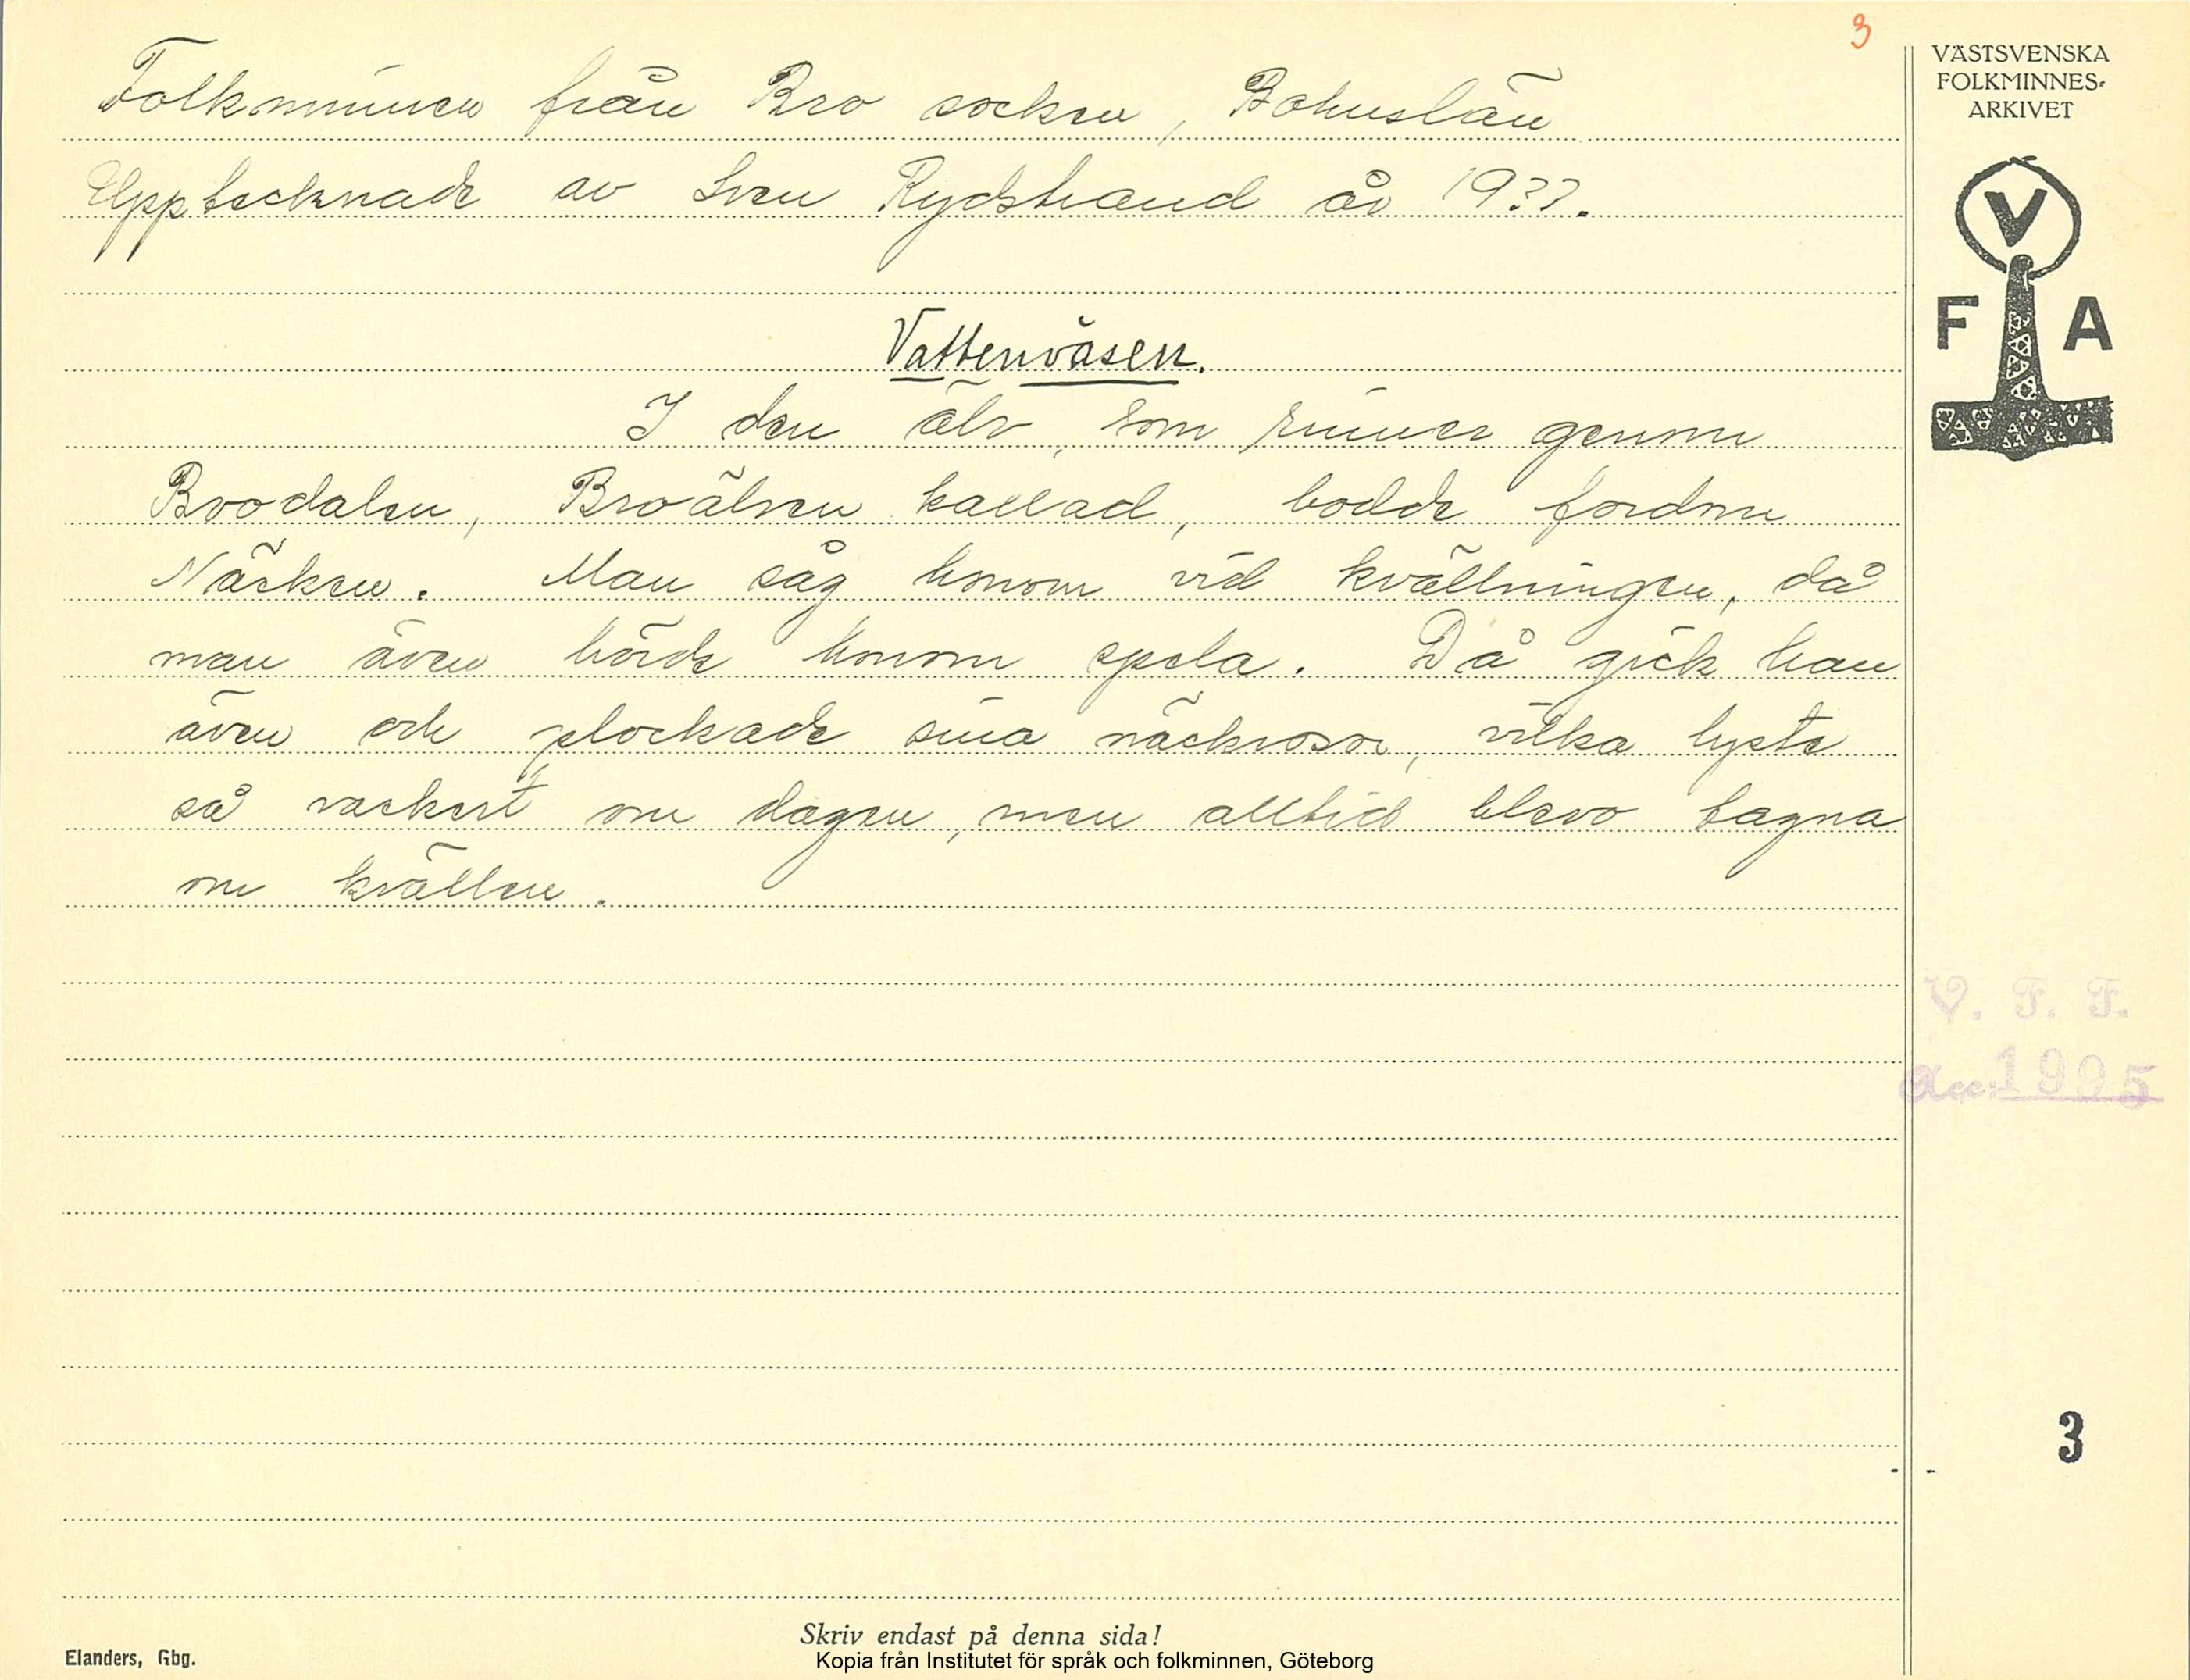 3
VÄSTSVENSKA
FOLKMINNES-
ARKIVET
V
F A
Folkminnen från Bro socken, Bohuslän
Upptecknade av Sven Rydstrand år 19??.
Vattenväsen.
I den älv, som rinner genom
Brodalen, Broälven kallad, bodde fordom
Näcken. Man såg honom vid kvällningen, då
man även hörde honom spela. Då gick han
även och plockade sina näckrosor, vilka lyste
så vackert om dagen, men alltid blevo tagna
om kvällen.
V. F. F.
Acc. 1995
3
Skriv endast på denna sida!
Elanders, Gbg.
Kopia från Institutet för språk och folkminnen, Göteborg